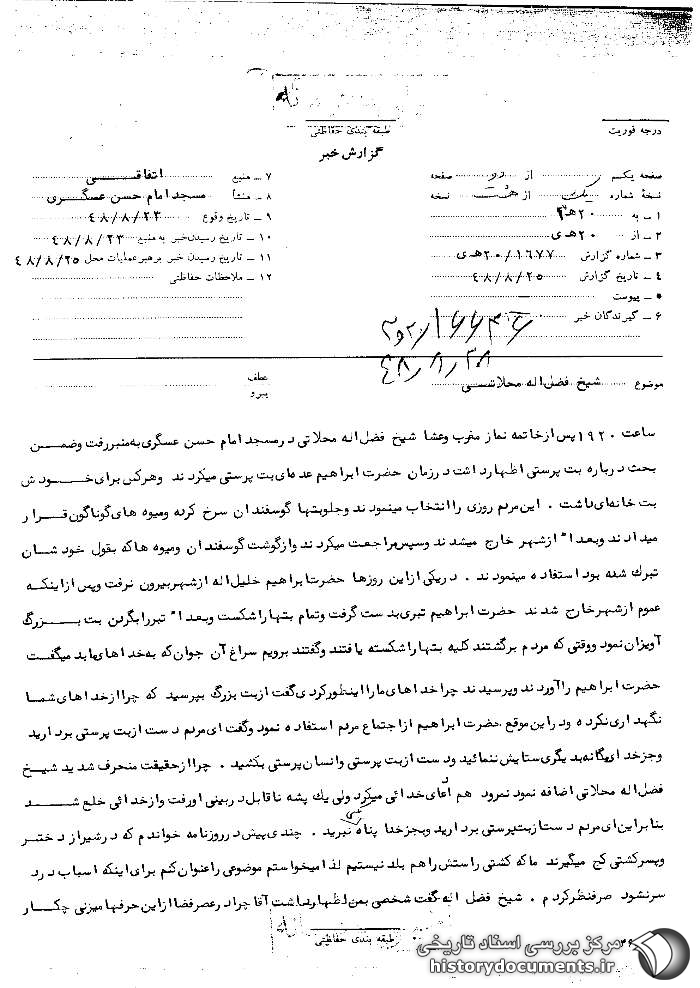 طبقه بندی حفاظتی
درجه فوریت
گزارش خبر
صفحه یکم از دو صفحه
نسخهٔ شماره یک از هشت نسخه
۱ - به ۲۰ هـ ۳
۲ - از ۲۰ هـ ی
۳ - شماره گزارش ۲۰/۱۶۷۷ هـ ی
۴ - تاریخ گزارش ۴۸/۸/۲۵
۵ - پیوست
۶ - گیرندگان خبر
۷ - منبع اتفاقی
۸ - منشأ مسجد امام حسن عسگری
۹ - تاریخ وقوع ۴۸/۸/۲۳
۱۰ - تاریخ رسیدن خبر به منبع ۴۸/۸/۲۳
۱۱ - تاریخ رسیدن خبر برهبر عملیات محل ۴۸/۸/۲۵
۱۲ - ملاحظات حفاظتی
۴۸/۸/۲۸
موضوع شیخ فضل اله محلاتی
عطف
پیرو
ساعت ۱۹۲۰ پس از خاتمه نماز مغرب و عشا شیخ فضل اله محلاتی در مسجد امام حسن عسگری به منبر رفت و ضمن
بحث درباره بت پرستی اظهار داشت در زمان حضرت ابراهیم عده ای بت پرستی میکردند و هر کس برای خودش
بت خانه ای داشت . این مردم روزی را انتخاب مینمودند و جلو بتها گوسفندان سرخ کرده و میوه های گوناگون قرار
میدادند و بعدا" از شهر خارج میشدند و سپس مراجعت میکردند و از گوشت گوسفندان و میوه ها که بقول خودشان
تبرك شده بود استفاده مینمودند . در یکی از این روزها حضرت ابراهیم خلیل اله از شهر بیرون نرفت و پس از اینکه
عموم از شهر خارج شدند حضرت ابراهیم تبری بدست گرفت و تمام بتها را شکست و بعدا" تبر را بگردن بت بزرگ
آویزان نمود و وقتی که مردم برگشتند کلیه بتها را شکسته یافتند و گفتند برویم سراغ آن جوان که به خداهای ما بد میگفت
حضرت ابراهیم را آوردند و پرسیدند چرا خداهای ما را اینطور کردی گفت از بت بزرگ بپرسید که چرا از خداهای شما
نگهداری نکرده و در این موقع حضرت ابراهیم از اجتماع مردم استفاده نمود و گفت ای مردم دست از بت پرستی بردارید
و جز خدای یگانه بدیگری ستایش ننمائید و دست از بت پرستی و انسان پرستی بکشید . چرا از حقیقت منحرف شدید شیخ
فضل اله محلاتی اضافه نمود نمرود هم ادعای خدائی میکرد ولی یك پشه ناقابل در بینی او رفت و از خدائی خلع شد
بنابراین ای مردم دست از بت پرستی بردارید و بجز خدا پناه نبرید . چندی پیش در روزنامه خواندم که در شیراز دختر
و پسر کشتی کج میگیرند ما که کشتی راستش را هم بلد نیستیم لذا میخواستم موضوعی را عنوان کنم برای اینکه اسباب درد
سر نشود صرفنظر کردم . شیخ فضل اله گفت شخصی بمن اظهار داشت آقا چرا در عصر فضا از این حرفها میزنی چکار
طبقه بندی حفاظتی
مرکز بررسی اسناد تاریخی
historydocuments.ir